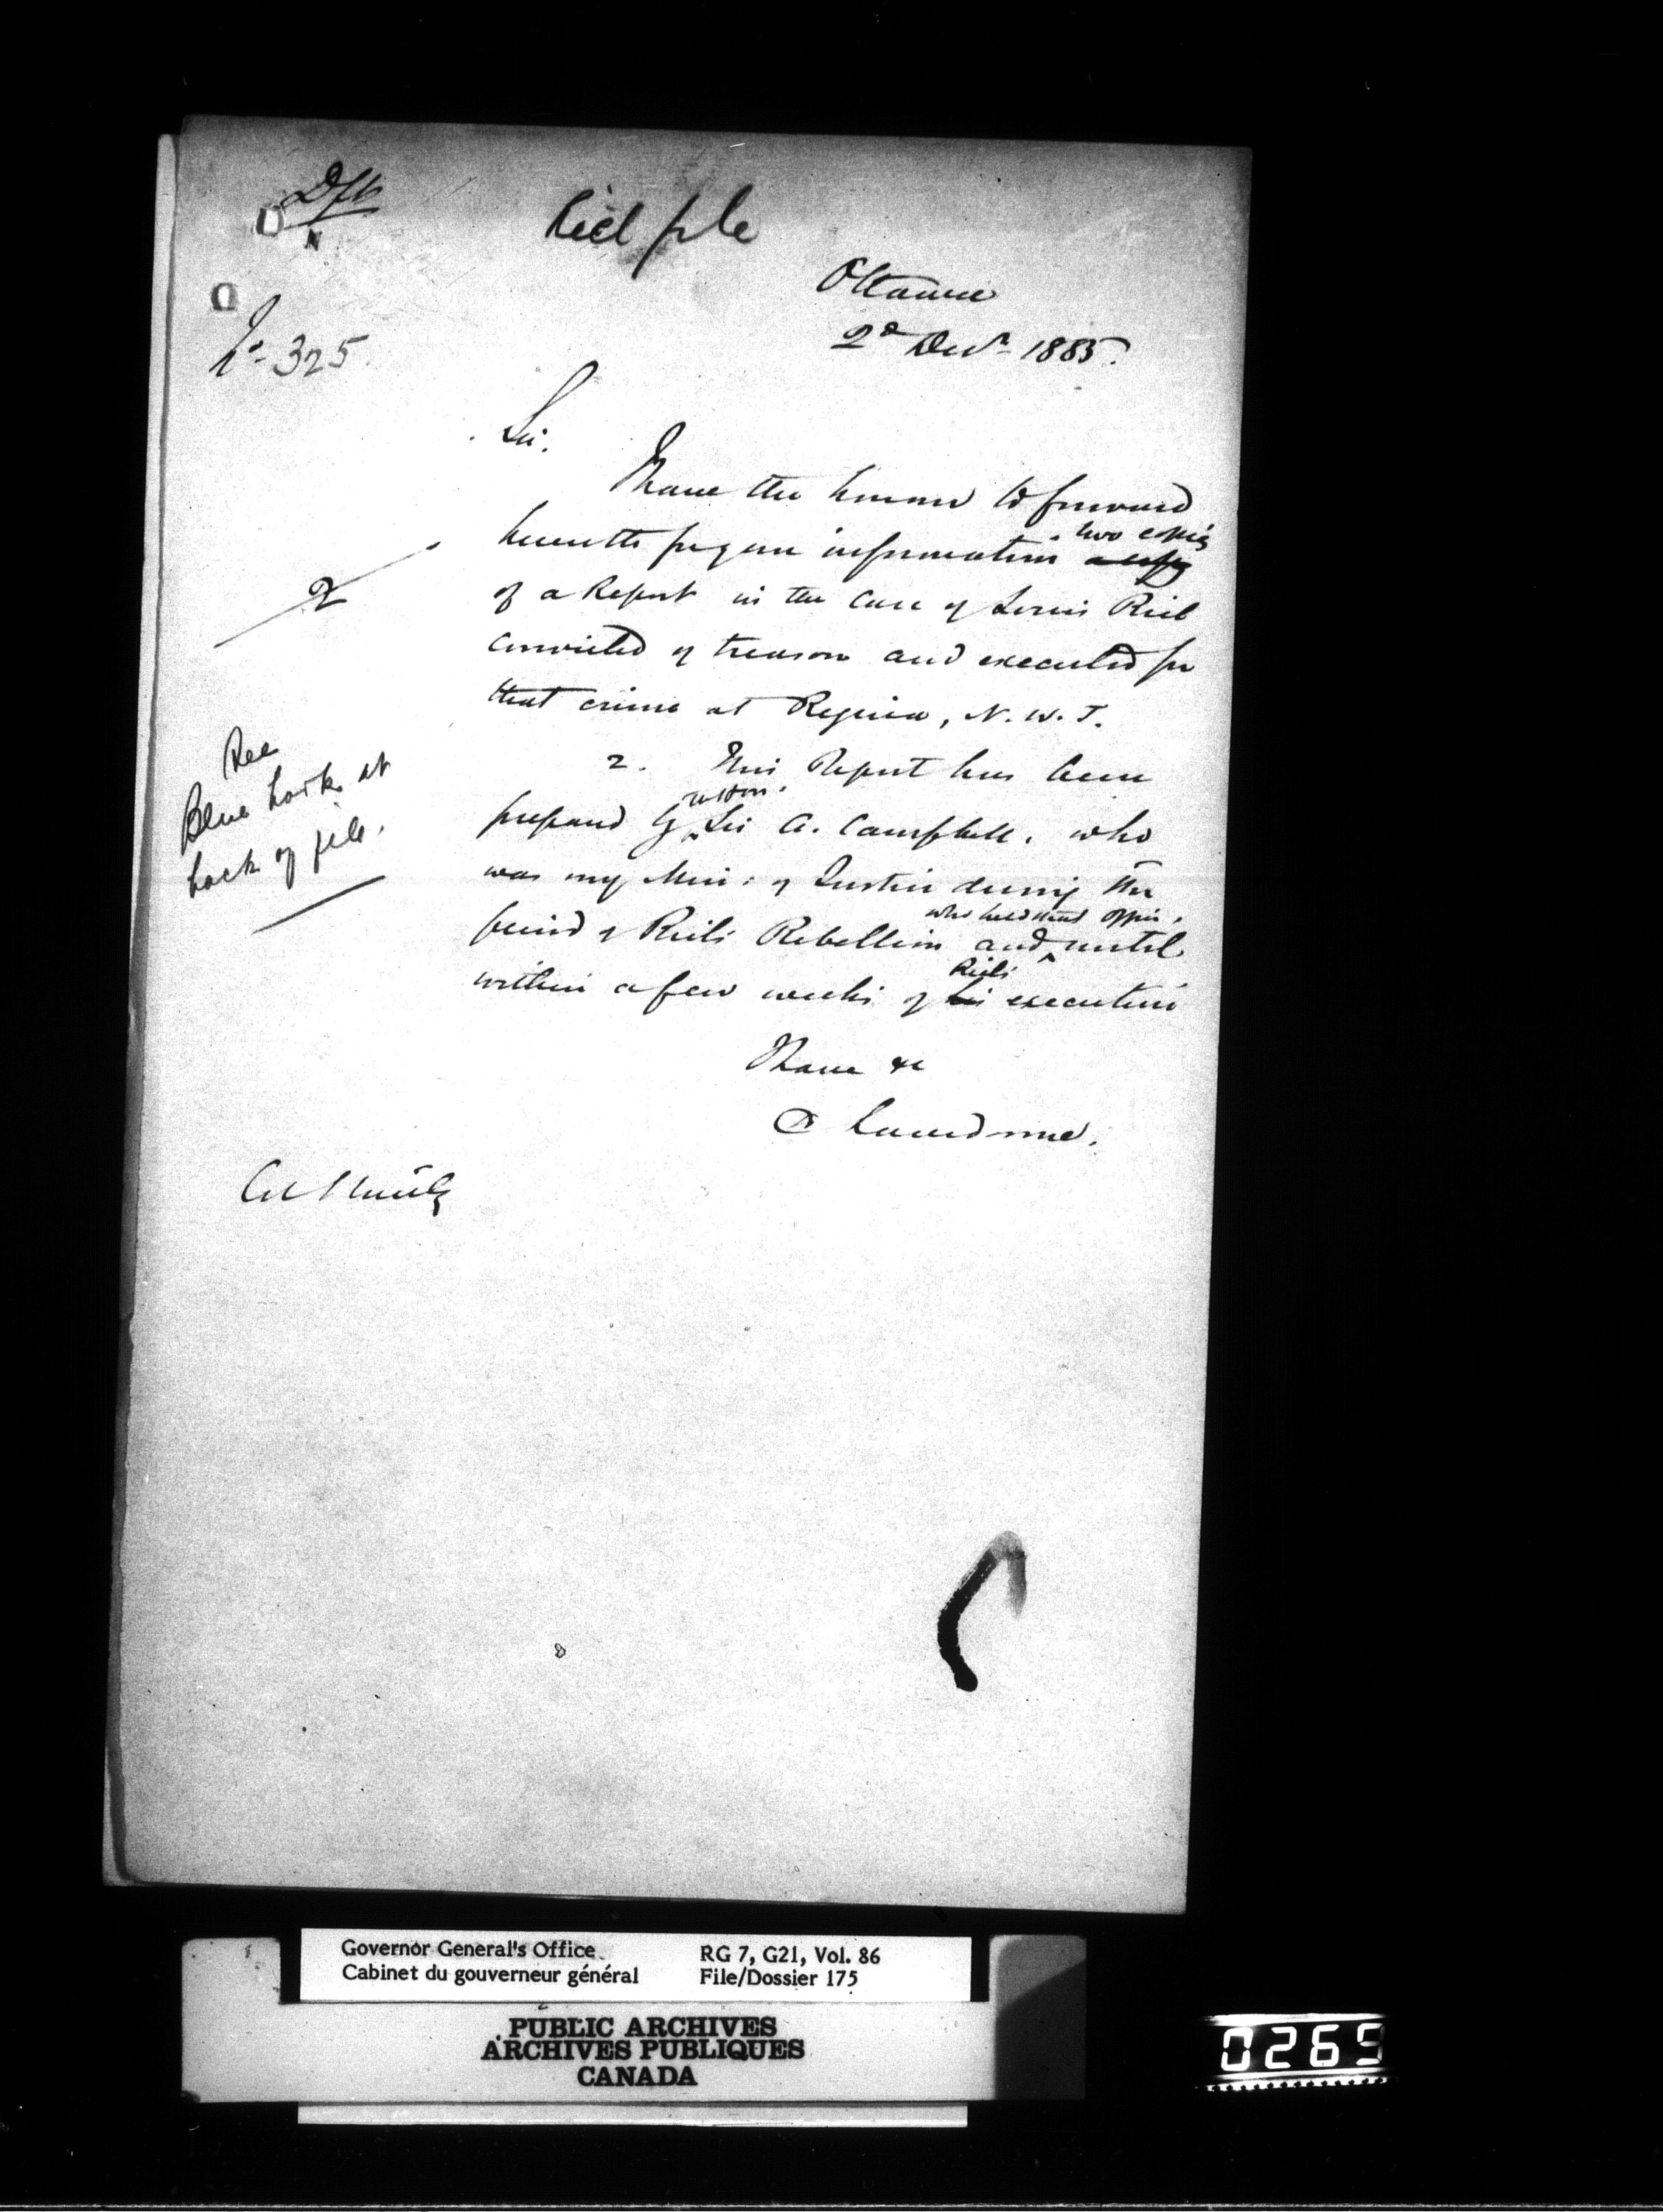 Dft
Riel file
Ottawa
No 325.
2d Decr 1885.
Sir.
I have the honour to forward
herewith for your information a copy two copies
of a Report in the case of Louis Riel
convicted of treason and executed for
that crime at Regina, N.W.T.
2
See
Blue book at
back of file.
2. This Report has been
prepared by the Hon. Sir A. Campbell, who
was my Min: of Justice during the
period of Riel's Rebellion and who held that office, until
within a few weeks of his Riel's execution
I have &c
Lansdowne.
Col Stanley
Governor General's Office
Cabinet du gouverneur général
RG 7, G21, Vol. 86
File/Dossier 175
PUBLIC ARCHIVES
ARCHIVES PUBLIQUES
CANADA
0269